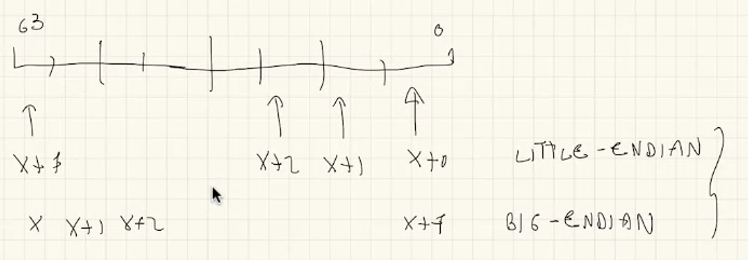 63 0
X+7 X+2 X+1 X+0 LITTLE-ENDIAN
X X+1 X+2 X+7 BIG-ENDIAN